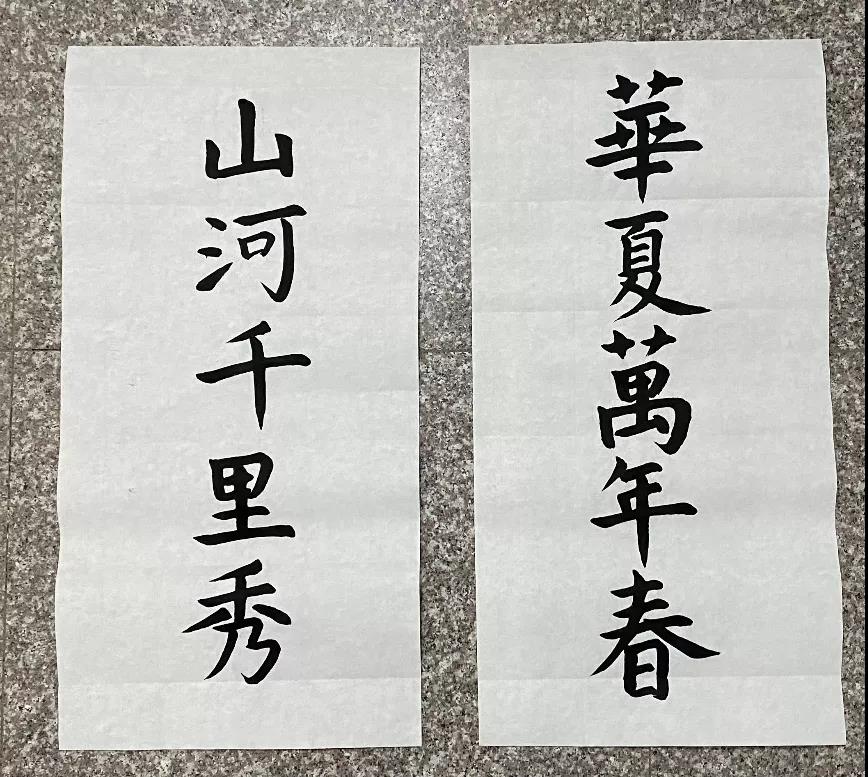 華夏萬年春
山河千里秀